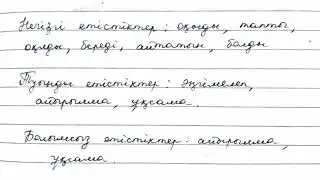 Негізгі етістіктер: оқыды, тапты,
оқиды, береді, айтатын, болды
Туынды етістіктер: әңгімелеп,
айырылма, ұқсама.
Болымсыз етістіктер: айырылма,
ұқсама.